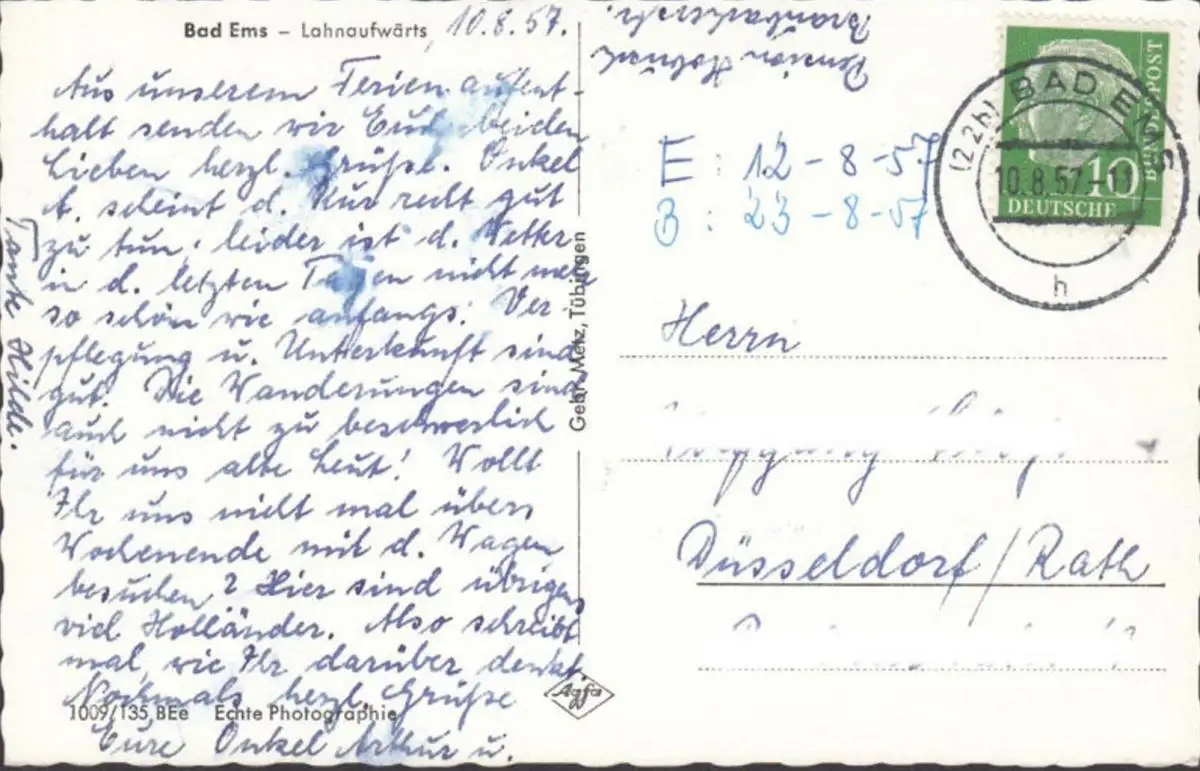 Bad Ems – Lahnaufwärts, 10.8.57.
Aus unserem Ferienaufent-
halt senden wir Euch beiden
Lieben herzl. Grüße. Onkel
A. scheint d. Kur recht gut
zu tun; leider ist d. Wetter
in d. letzten Tagen nicht mehr
so schön wie anfangs. Ver-
pflegung u. Unterkunft sind
gut. Die Wanderungen sind
auch nicht zu beschwerlich
für uns alte Leut! Wollt
Ihr uns nicht mal übers
Wochenende mit d. Wagen
besuchen? Hier sind übrigens
viel Holländer. Also schreibt
mal, wie Ihr darüber denkt.
Nochmals herzl. Grüße
Eure Onkel Arthur u.
Tante Hilde.
1009/135 BEe Echte Photographie
Gebr. Metz, Tübingen
Agfa
Pension
E: 12-8-57
B: 23-8-57
(22b) BAD EMS
10.8.57-11
h
BUNDESPOST
10
DEUTSCHE
Herrn
Düsseldorf/Rath